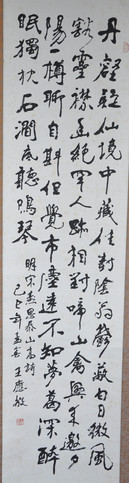 丹壑疑仙境中藏佳樹陰蓊鬱蔽白日微風
豁靈襟區絕罕人跡相對啼山禽興來邀夕
陽一樽聊自斟但覺市塵遠不知蘿葛深醉
眠獨枕石澗底聽鳴琴
明宋燾泰山詩
己巳年孟春王應敏